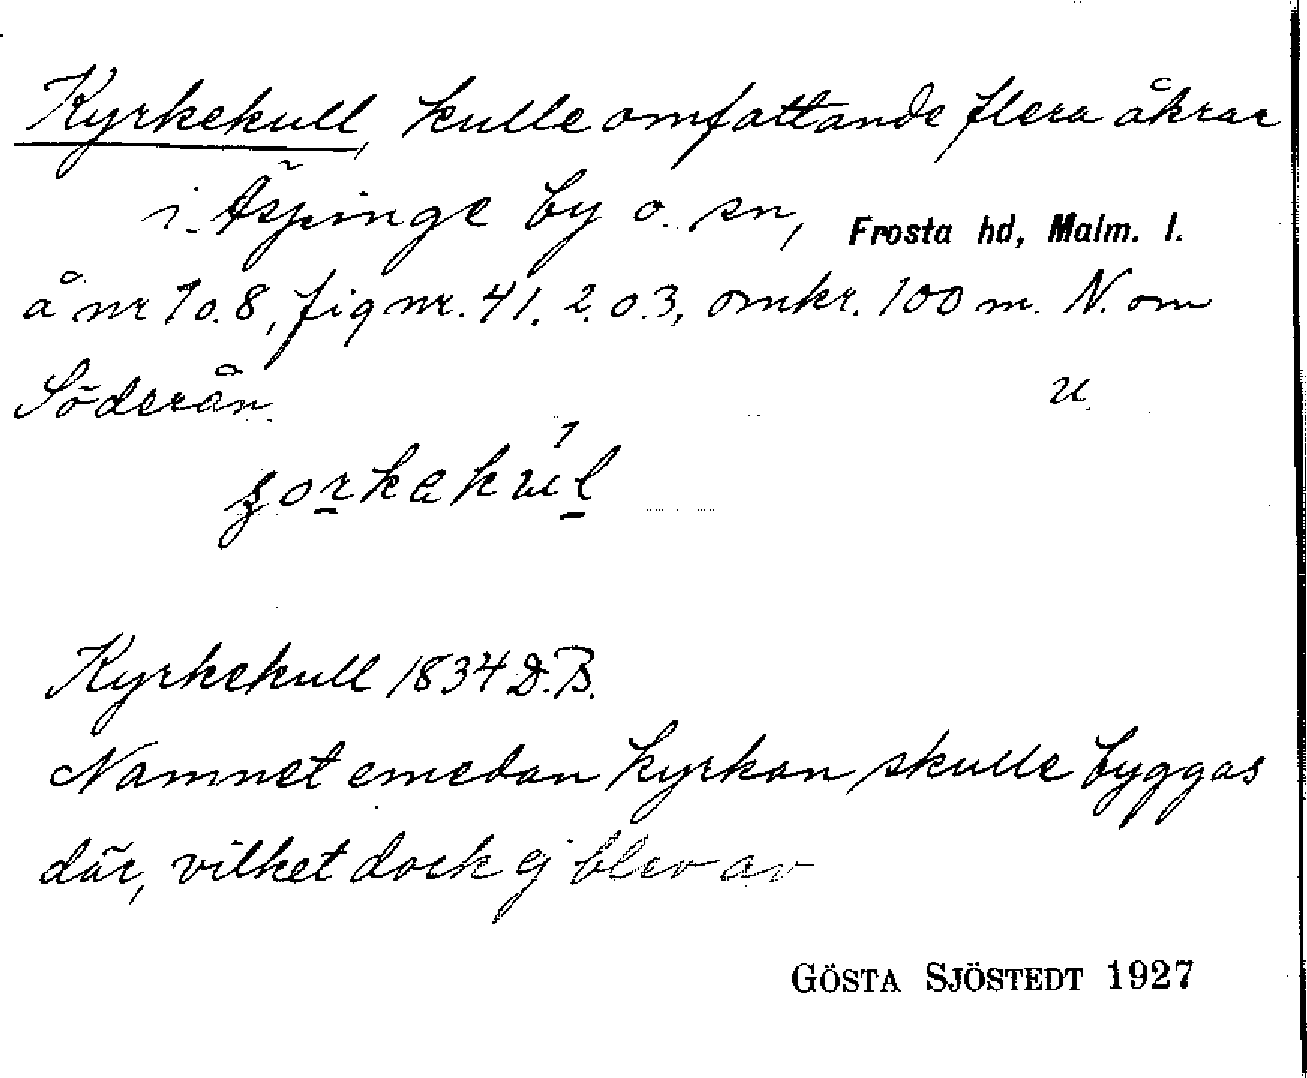 Kyrkekull, kulle omfattande flera åkrar
i Äspinge by o. sn, Frosta hd, Malm. l.
å nr 7 o. 8, fig nr. 41. 2. o. 3, omkr. 100 m. N. om
Söderån. u.
Kyrkekull 1834 D.B.
Namnet emedan kyrkan skulle byggas
där, vilket dock ej blev av
GÖSTA SJÖSTEDT 1927